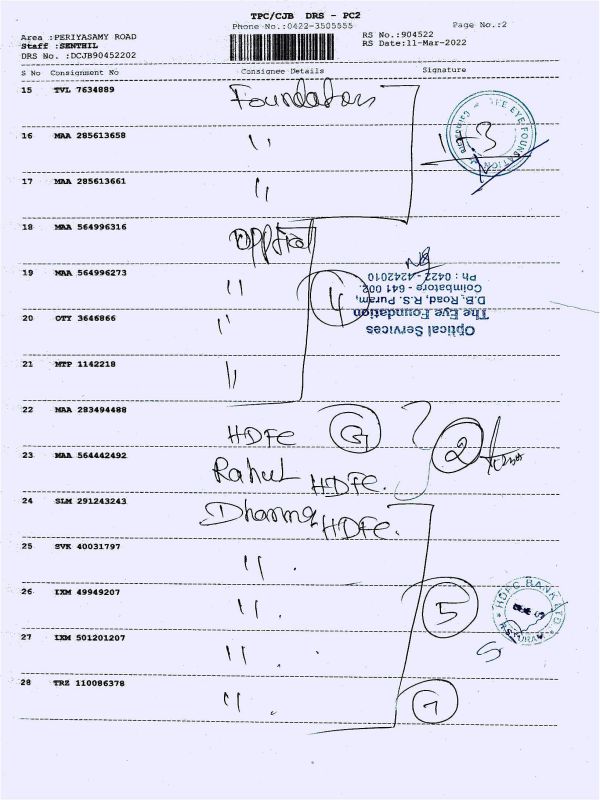 TPC/CJB DRS - PC2
Phone No.:0422-3505555
Page No.:2
Area :PERIYASAMY ROAD
Staff :SENTHIL
DRS No. :DCJB90452202
RS No.:904522
RS Date:11-Mar-2022
S No Consignment No Consignee Details Signature
15 TVL 7634889 Foundation
16 MAA 285613658 "
17 MAA 285613661 "
3
THE EYE FOUNDATION
18 MAA 564996316 Optical
19 MAA 564996273 "
20 OTY 3646866 "
21 MTP 1142218 "
4
Optical Services
The Eye Foundation
D.B. Road, R.S. Puram,
Coimbatore - 641 002.
Ph : 0422 - 4242010
22 MAA 283494488 HDFC
23 MAA 564442492 Rahul HDFC.
2
24 SLM 291243243 Dharma HDFC.
25 SVK 40031797 " .
26 IXM 49949207 " .
27 IXM 501201207 " .
28 TRZ 110086378 " .
5
HDFC BANK LTD
5